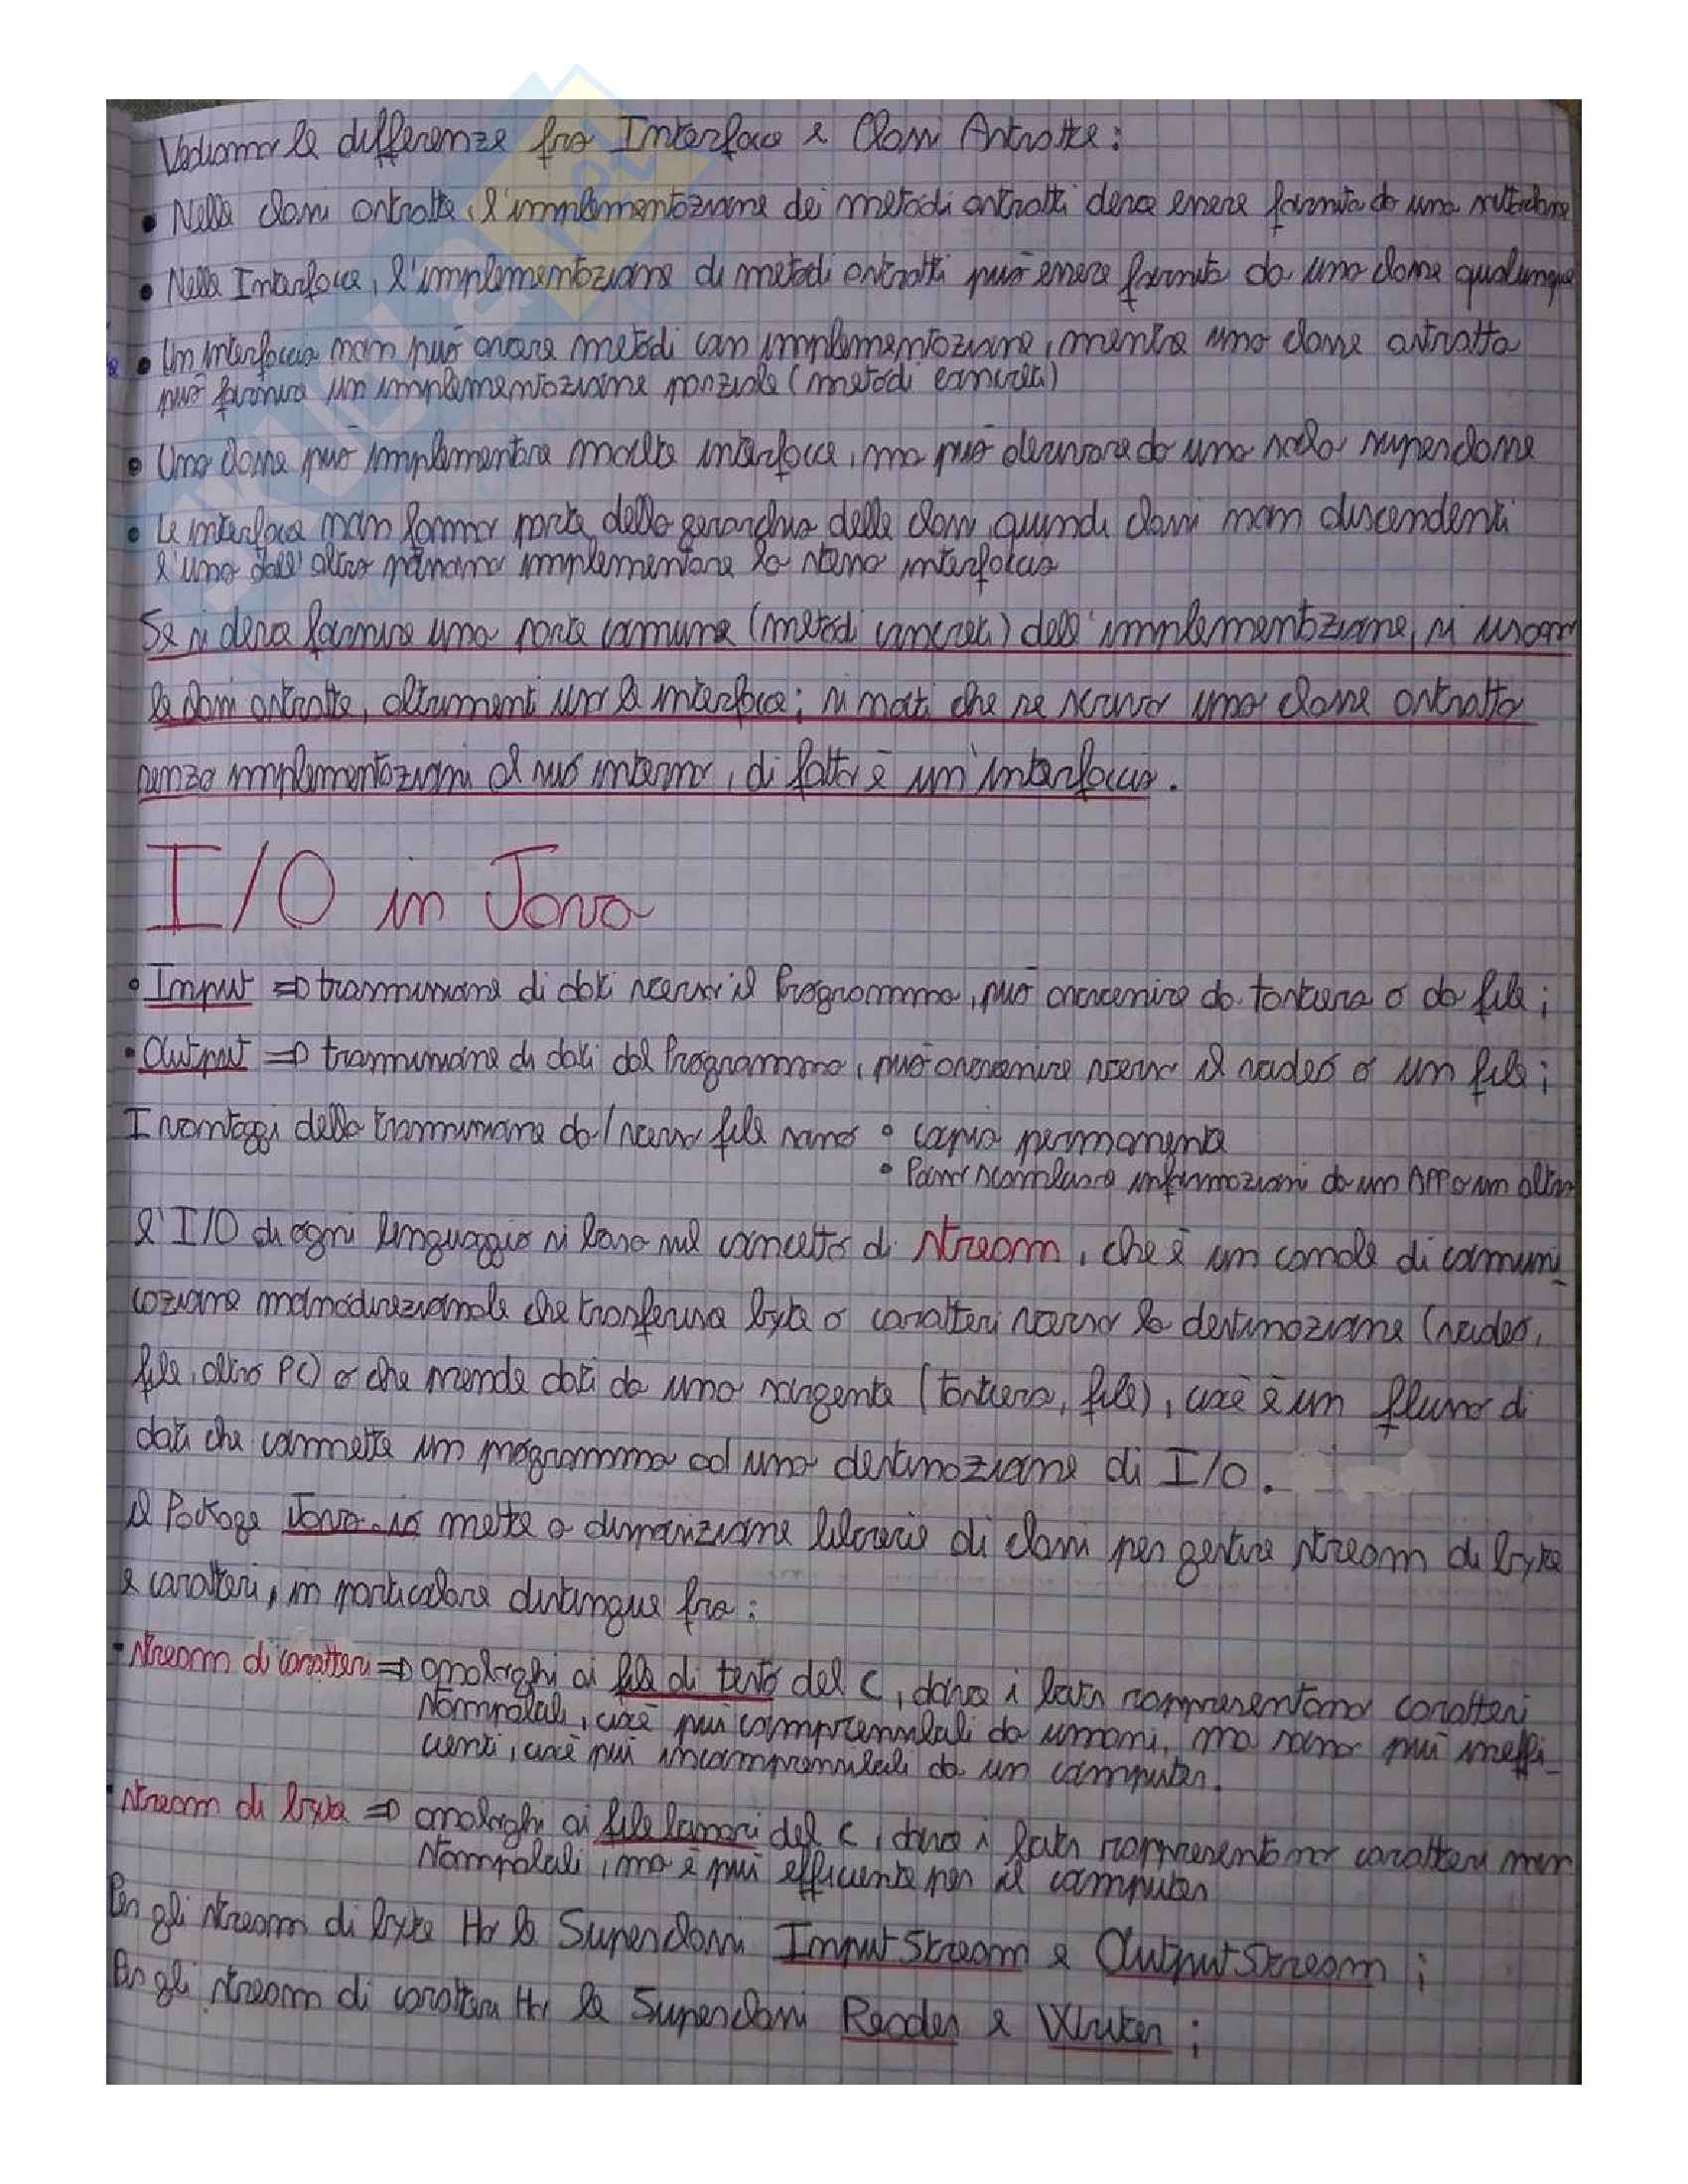 Vediamo le differenze fra Interfacce e Classi Astratte:
• Nelle classi astratte, l'implementazione dei metodi astratti deve essere fornita da una sottoclasse
• Nelle Interfacce, l'implementazione di metodi astratti può essere fornita da una classe qualunque
• Un interfaccia non può avere metodi con implementazione, mentre una classe astratta
può fornire un implementazione parziale (metodi concreti)
• Una classe può implementare molte interfacce, ma può derivare da una sola superclasse
• Le interfacce non fanno parte della gerarchia delle classi, quindi classi non discendenti
l'una dall'altra possono implementare la stessa interfaccia
Se si deve fornire una parte comune (metodi concreti) dell'implementazione, si usano
le classi astratte, altrimenti uso le interfacce; si noti che se scrivo una classe astratta
senza implementazioni al suo interno, di fatto è un'interfaccia.
I/O in Java
• Input => trasmissione di dati verso il Programma, può avvenire da tastiera o da file;
• Output => trasmissione di dati dal Programma, può avvenire verso il video o un file;
I vantaggi della trasmissione da/verso file sono • copia permanente
• Posso scambiare informazioni da un APP a un altra
L'I/O di ogni linguaggio si basa sul concetto di stream, che è un canale di comuni_
cazione monodirezionale che trasferisce byte o caratteri verso la destinazione (video,
file, altro PC) o che prende dati da una sorgente (tastiera, file), cioè è un flusso di
dati che connette un programma ad una destinazione di I/O.
Il Package Java.io mette a disposizione librerie di classi per gestire stream di byte
e caratteri, in particolare distingue fra:
• stream di caratteri => analoghi ai file di testo del C, dove i bytes rappresentano caratteri
stampabili, cioè più comprensibili da umani, ma sono più ineffi_
cienti, cioè più incomprensibili da un computer.
• stream di byte => analoghi ai file binari del C, dove i bytes rappresentano caratteri non
stampabili, ma è più efficiente per il computer
Per gli stream di byte Ho le Superclassi InputStream e OutputStream;
Per gli stream di caratteri Ho le Superclassi Reader e Writer;